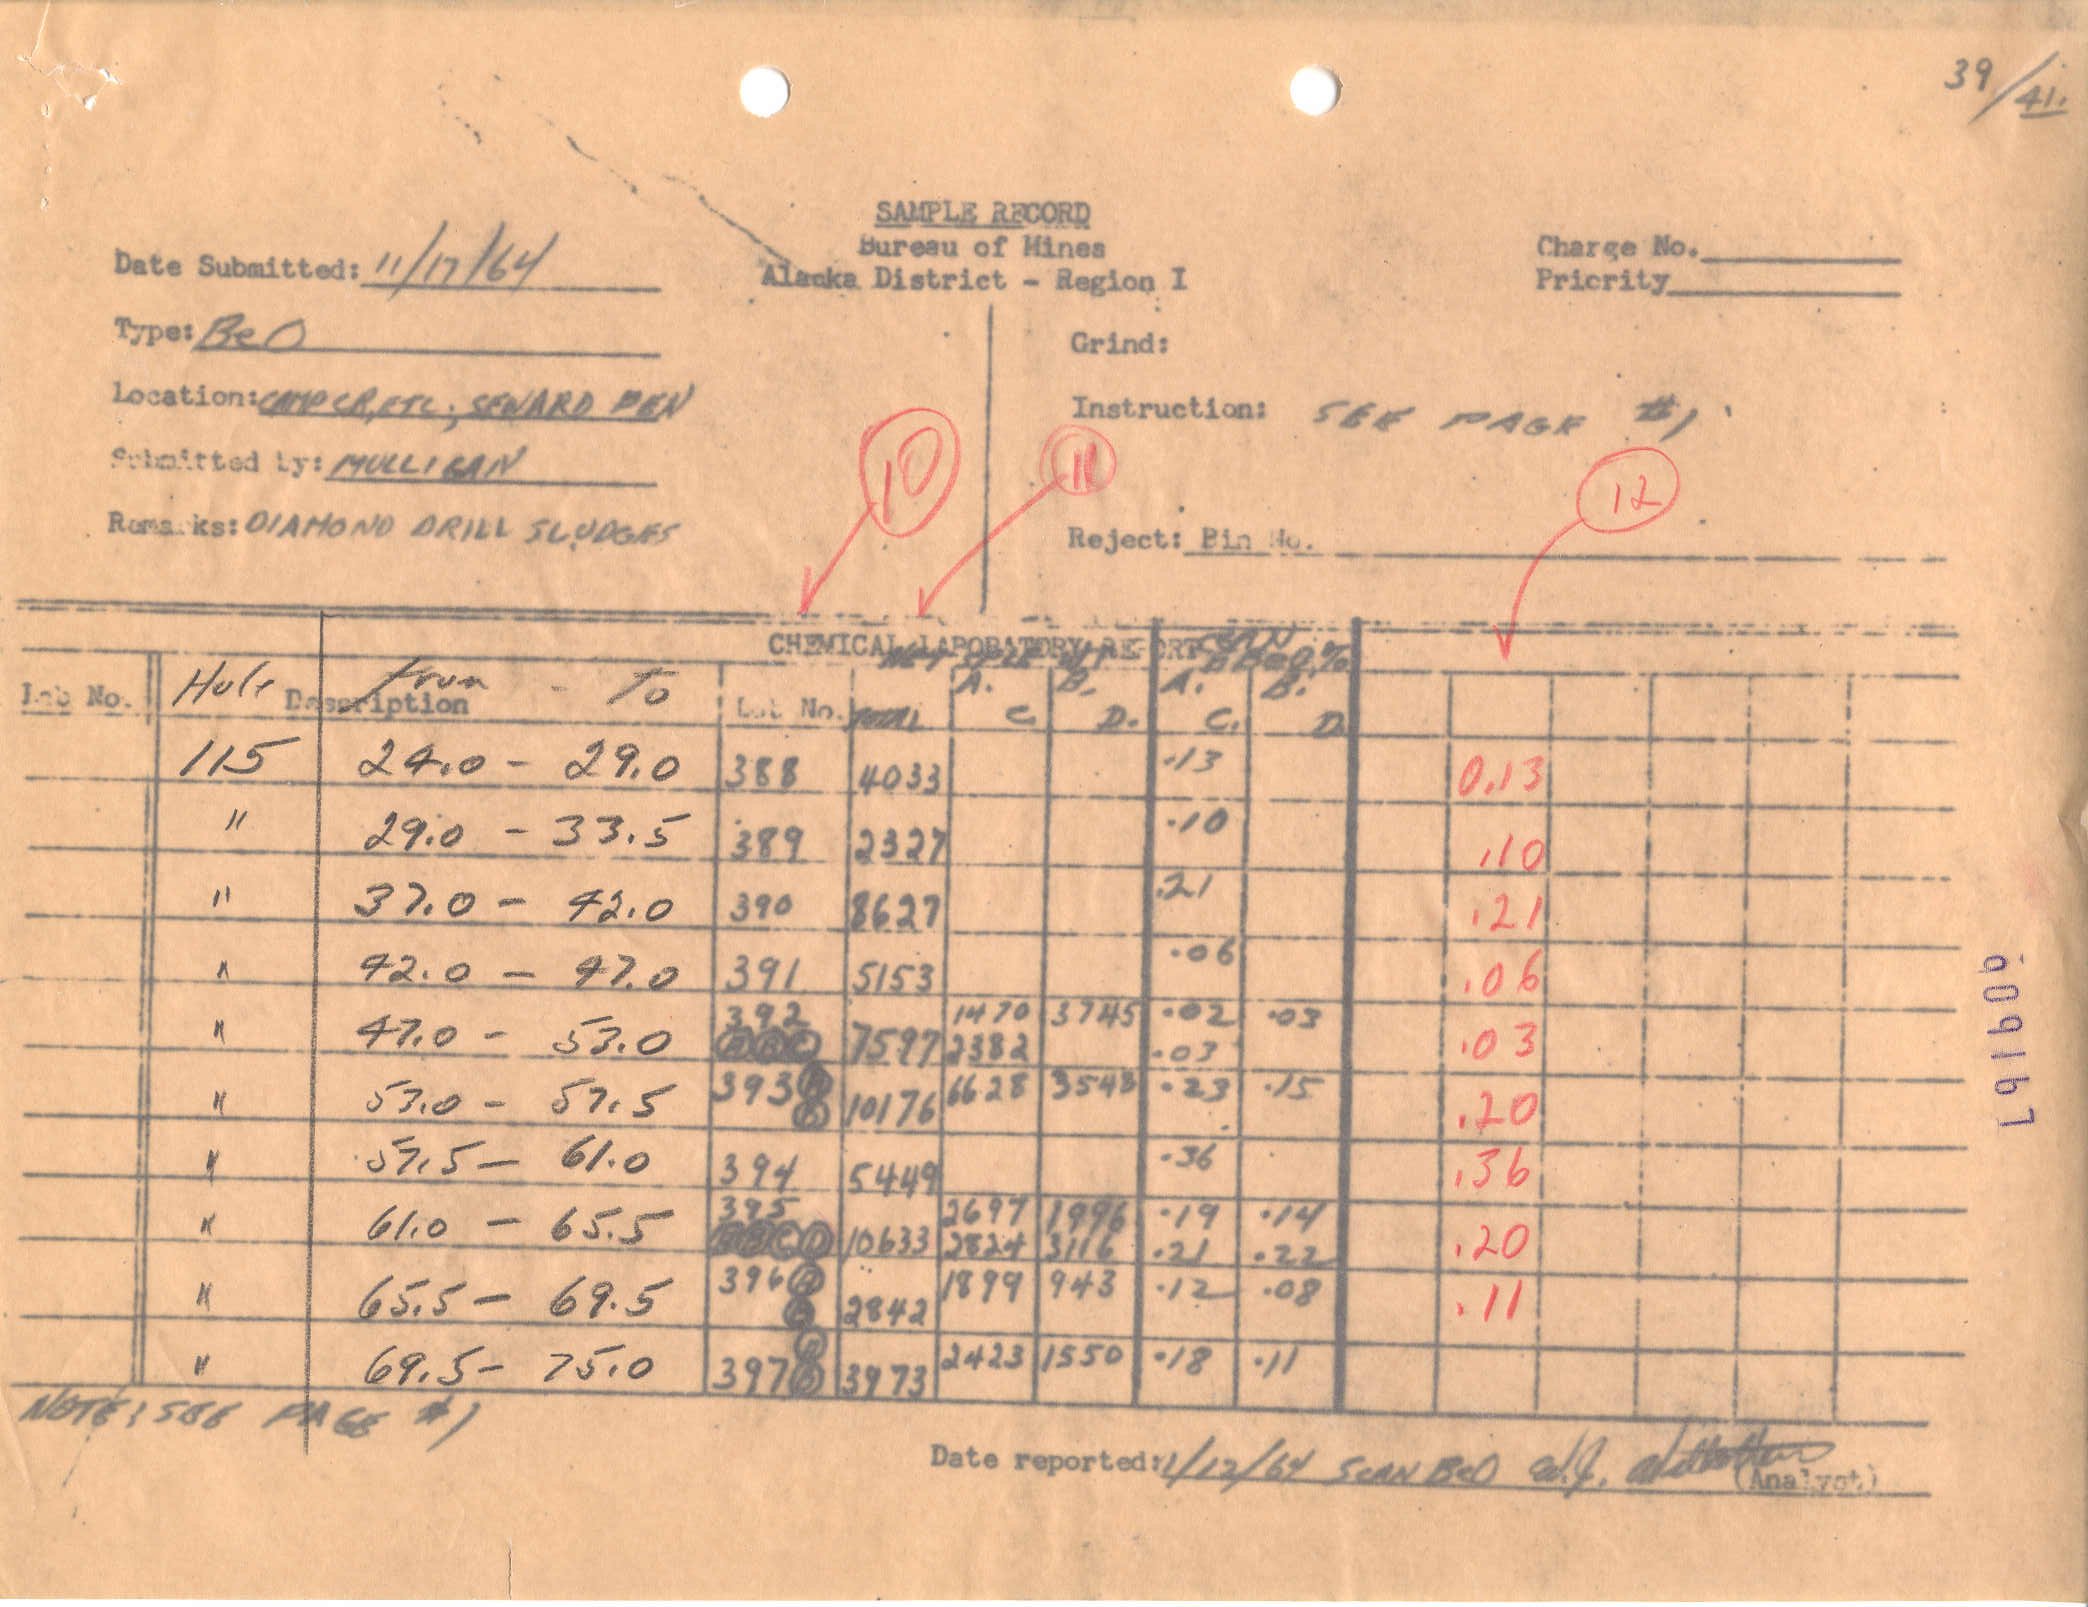 39/41.
SAMPLE RECORD
Bureau of Mines
Alaska District - Region I
Date Submitted: 11/17/64
Charge No.
Priority
Type: BeO
Grind:
Location: CAMP CR, ETC, SEWARD PEN
Instruction: SEE PAGE #1
Submitted by: MULLIGAN
10 11 12
Remarks: DIAMOND DRILL SLUDGES
Reject: Bin No.
CHEMICAL LABORATORY REPORT
Lab No. Hole Description From - To Lot No. TOTAL A. C. B. D. A. C. B. D.
115 24.0 - 29.0 388 4033 .13 0.13
" 29.0 - 33.5 389 2327 .10 .10
" 37.0 - 42.0 390 8627 .21 .21
" 42.0 - 47.0 391 5153 .06 .06
" 47.0 - 53.0 392 1470 3745 .02 .03
ABC 7597 2382 .03 .03
" 53.0 - 57.5 393 A B 10176 6628 3548 .23 .15 .20
" 57.5 - 61.0 394 5449 .36 .36
" 61.0 - 65.5 395 2697 1996 .19 .14
ABCD 10633 2824 3116 .21 .22 .20
" 65.5 - 69.5 396 A B 2842 1899 943 .12 .08 .11
" 69.5 - 75.0 397 A B 3973 2423 1550 .18 .11
NOTE: SEE PAGE #1
Date reported: 1/12/64 SCAN BeO
(Analyst)
609167